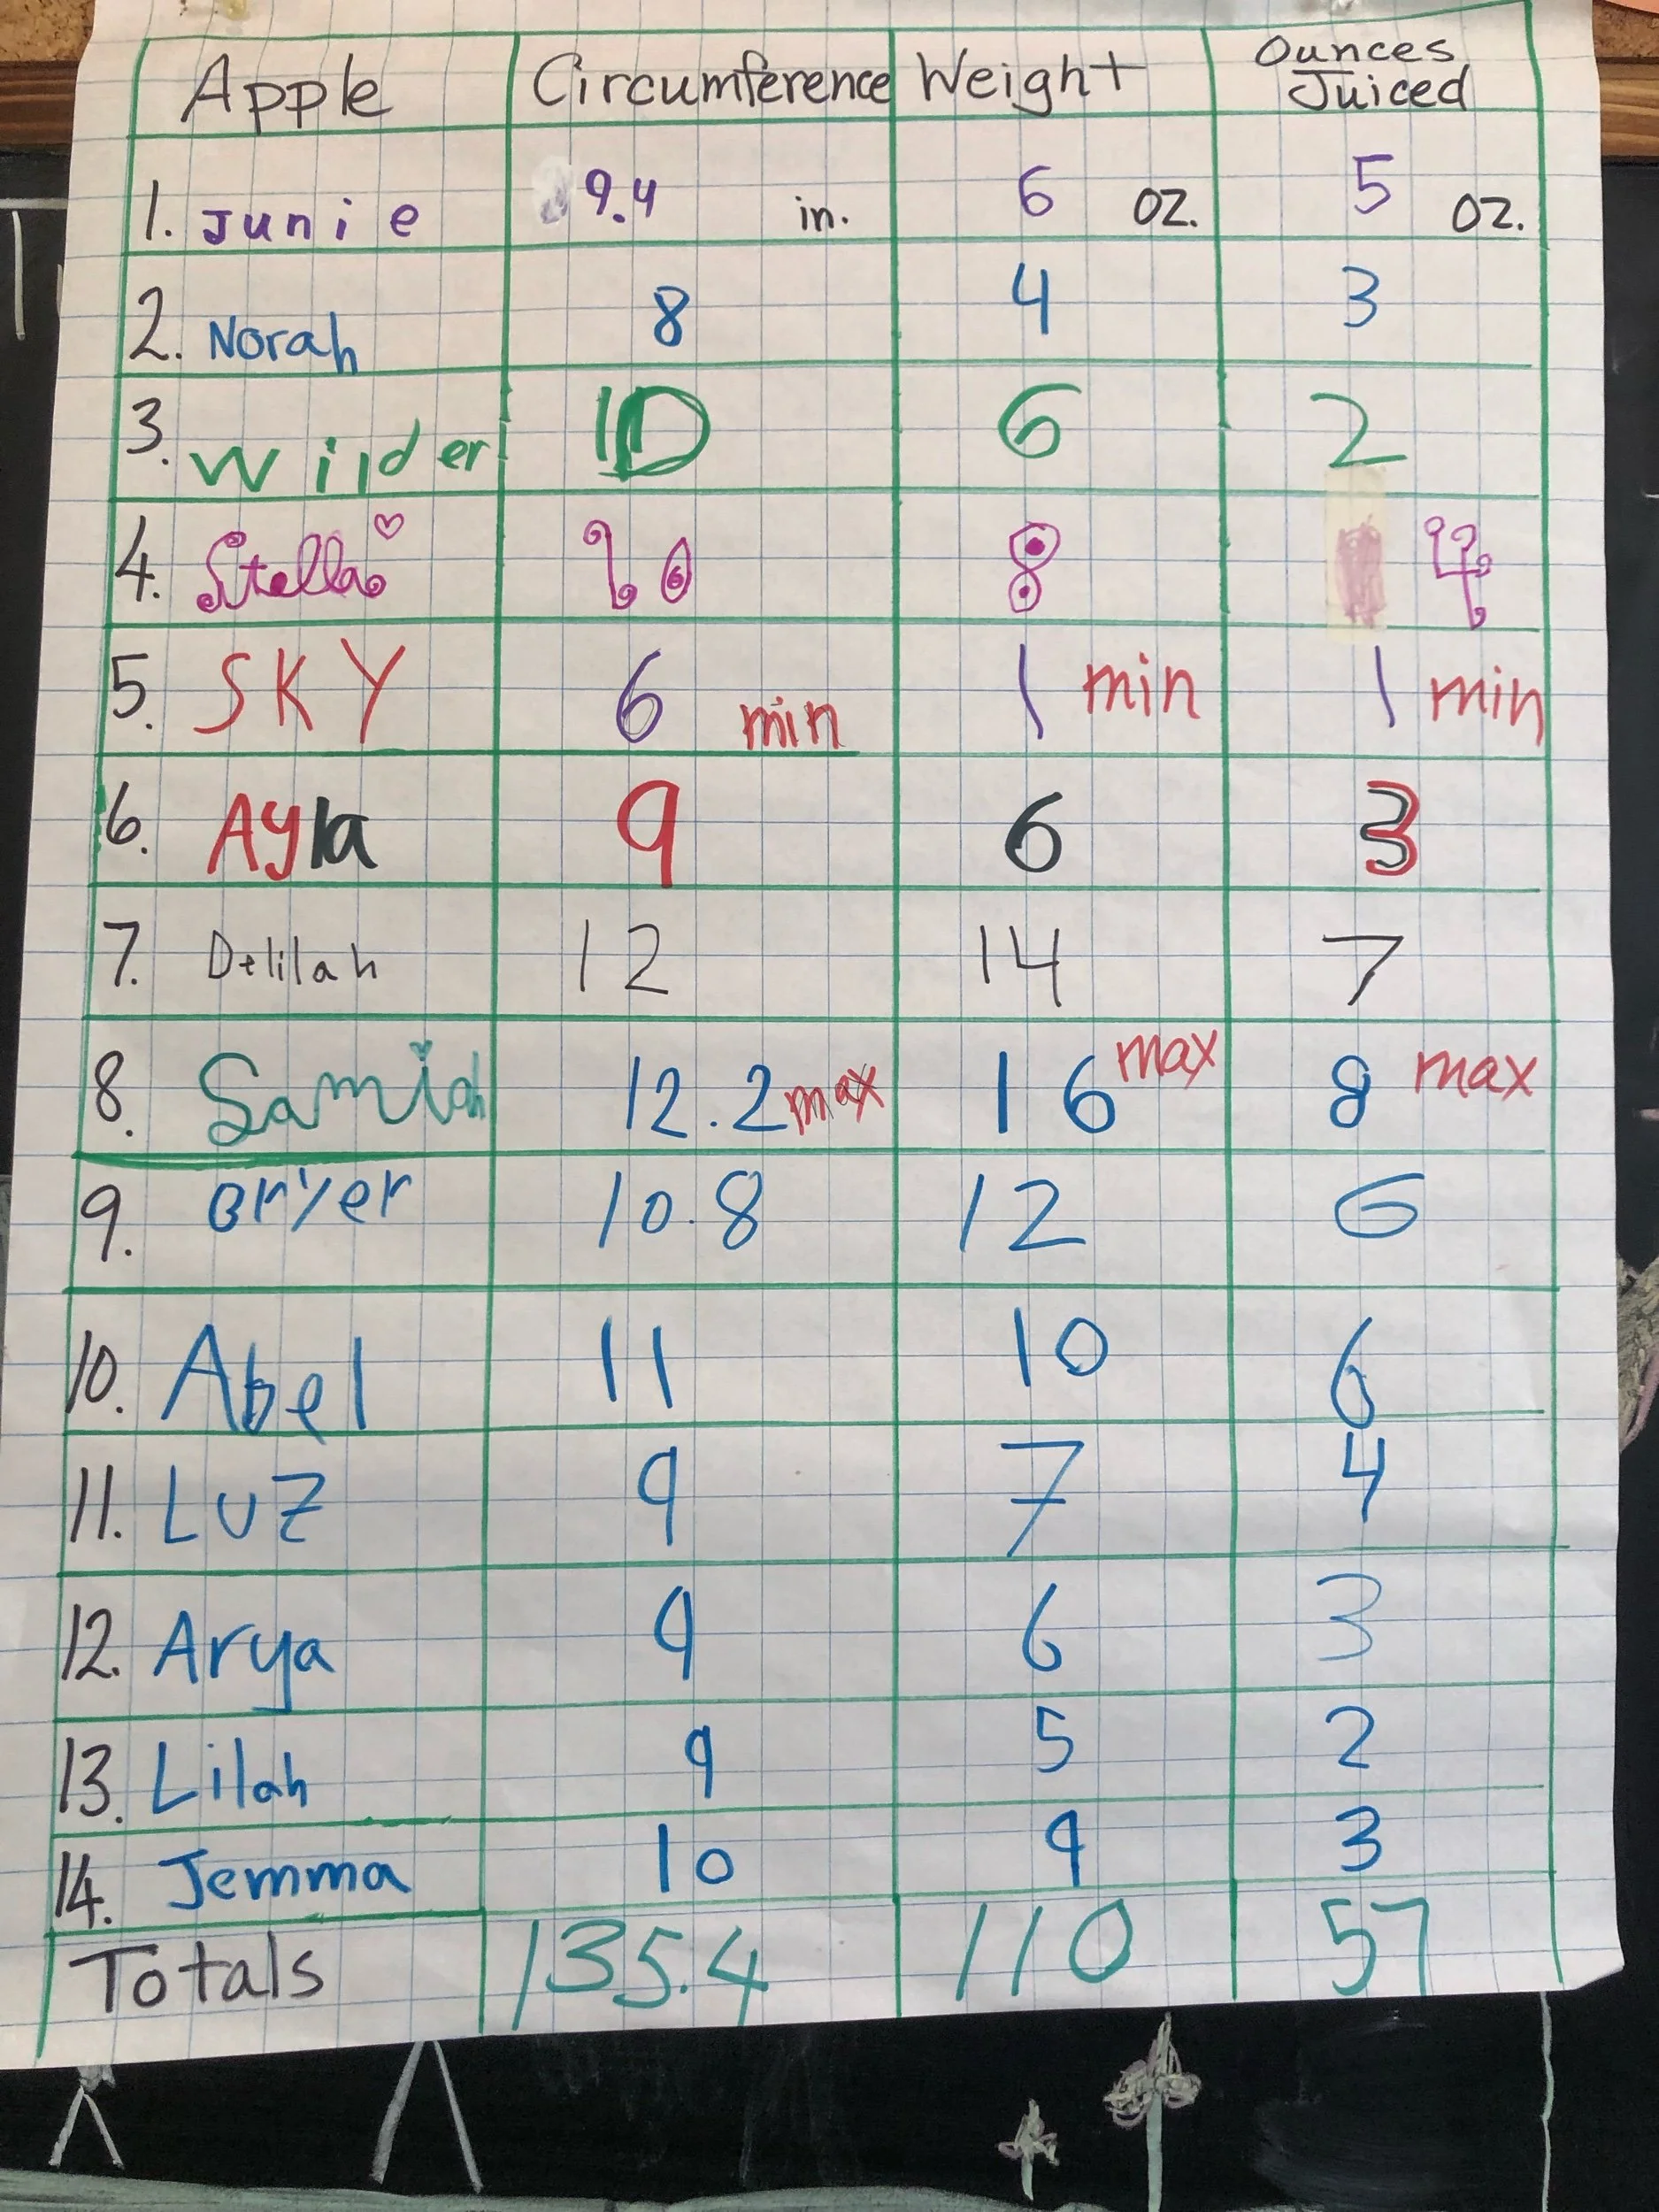 Apple Circumference Weight Ounces Juiced
1. Junie 9.4 in. 6 oz. 5 oz.
2. Norah 8 4 3
3. Wilder 10 6 2
4. Stella 10 8 4
5. SKY 6 min 1 min 1 min
6. Ayla 9 6 3
7. Delilah 12 14 7
8. Samiah 12.2 max 16 max 8 max
9. Bryer 10.8 12 6
10. Abel 11 10 6
11. LUZ 9 7 4
12. Arya 9 6 3
13. Lilah 9 5 2
14. Jemma 10 9 3
Totals 135.4 110 57